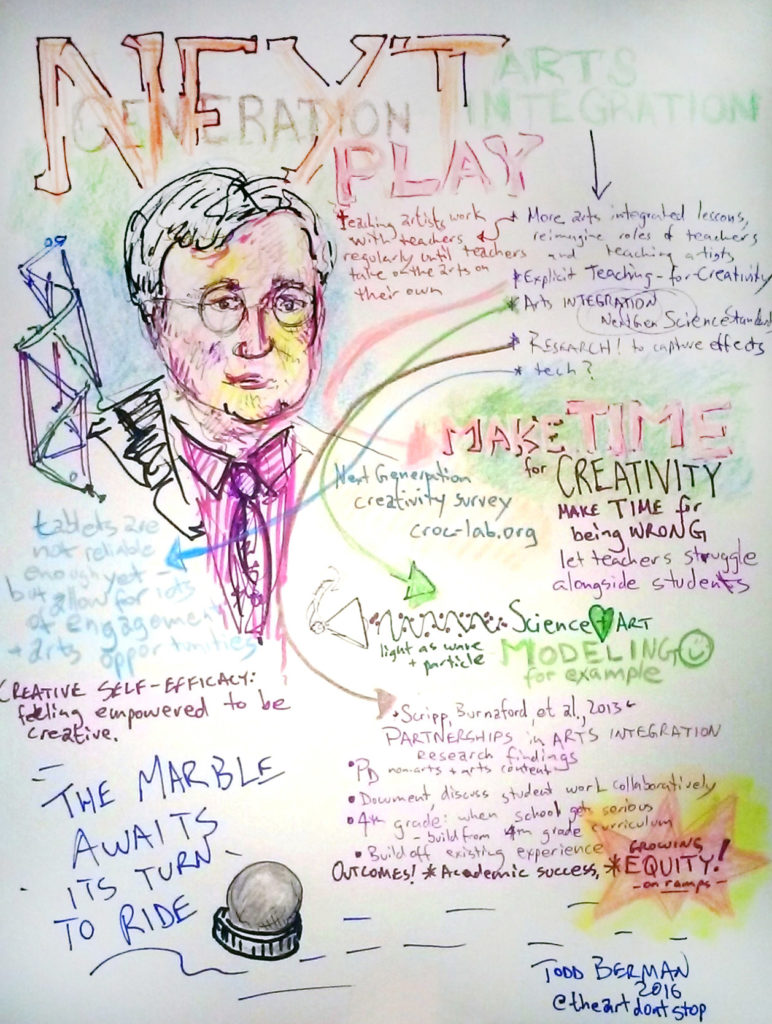 NEXT
GENERATION
ARTS
INTEGRATION
PLAY
Teaching artists work
with teachers
regularly until teachers
take on the arts on
their own
* More arts integrated lessons,
reimagine roles of teachers
and teaching artists
* Explicit Teaching-for-Creativity
* Arts INTEGRATION
NextGen Science Standard
* RESEARCH! to capture effects
* tech?
MAKE TIME
for CREATIVITY
MAKE TIME for
being WRONG
let teachers struggle
alongside students
Next Generation
creativity survey
croc-lab.org
tablets are
not reliable
enough yet -
but allow for lots
of engagement
+ arts opportunities
Science + ART
light as wave
+ particle
MODELING
for example
CREATIVE SELF-EFFICACY:
feeling empowered to be
creative.
• Scripp, Burnaford, et al., 2013
PARTNERSHIPS in ARTS INTEGRATION
research findings
• PD non-arts + arts content
• Document discuss student work collaboratively
• 4th grade: when school gets serious
- build from 4th grade curriculum
• Build off existing experience
OUTCOMES! * Academic success, *
GROWING
EQUITY!
- on ramps -
THE MARBLE
AWAITS
ITS TURN
TO RIDE
TODD BERMAN
2016
@theartdontstop